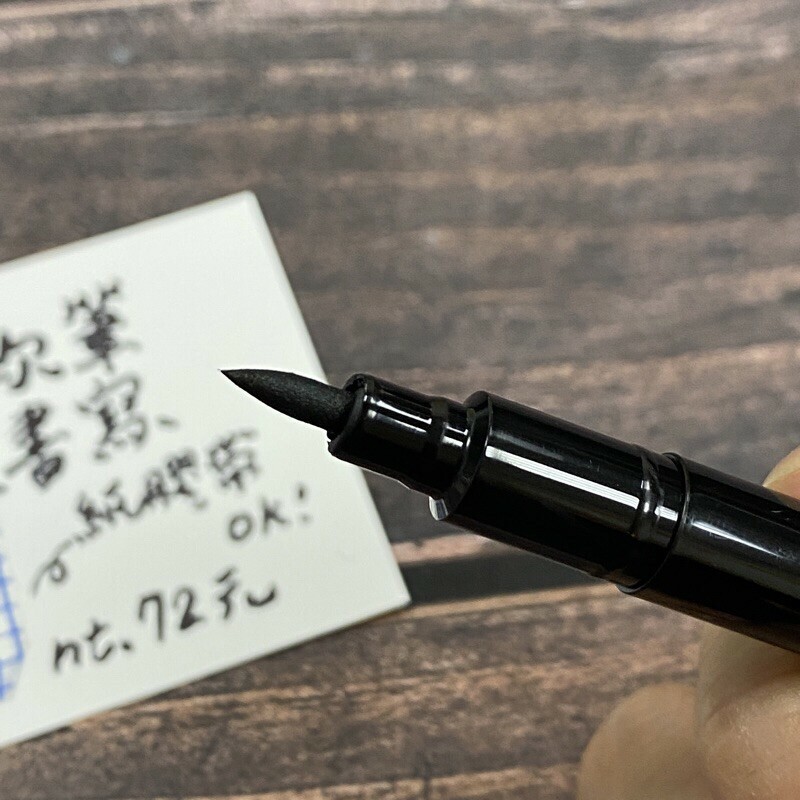 軟筆
書寫、
紙膠帶
OK!
nt.72元